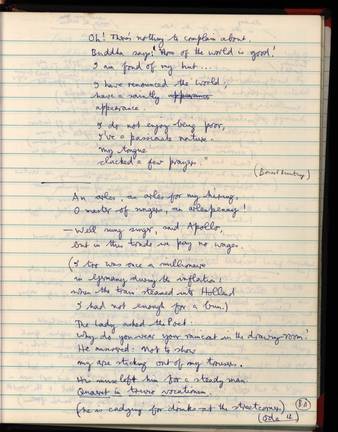 Oh! There's nothing to complain about.
Buddha says: None of the world is good.
I am fond of my hut....
I have renounced the world;
have a saintly appearance
appearance.
I do not enjoy being poor,
I've a passionate nature.
My tongue
clacked a few prayers."
An obol, an obol for my
O master of singers, an
— Well sung singer, said Apollo,
but in this trade we pay no wages.
(I too was once a millionaire
in Germany during the inflation:
when the train steamed into Holland
I had not enough for a bun.)
The Lady asked the Poet:
Why do you wear your raincoat in the drawing-room?
He answered: Not to show
my arse sticking out of my trousers.
His muse left him for a steady man.
Quaerit in trivio vocationem.
(he is cadging for drinks at the streetcorners)
(Ode 12)